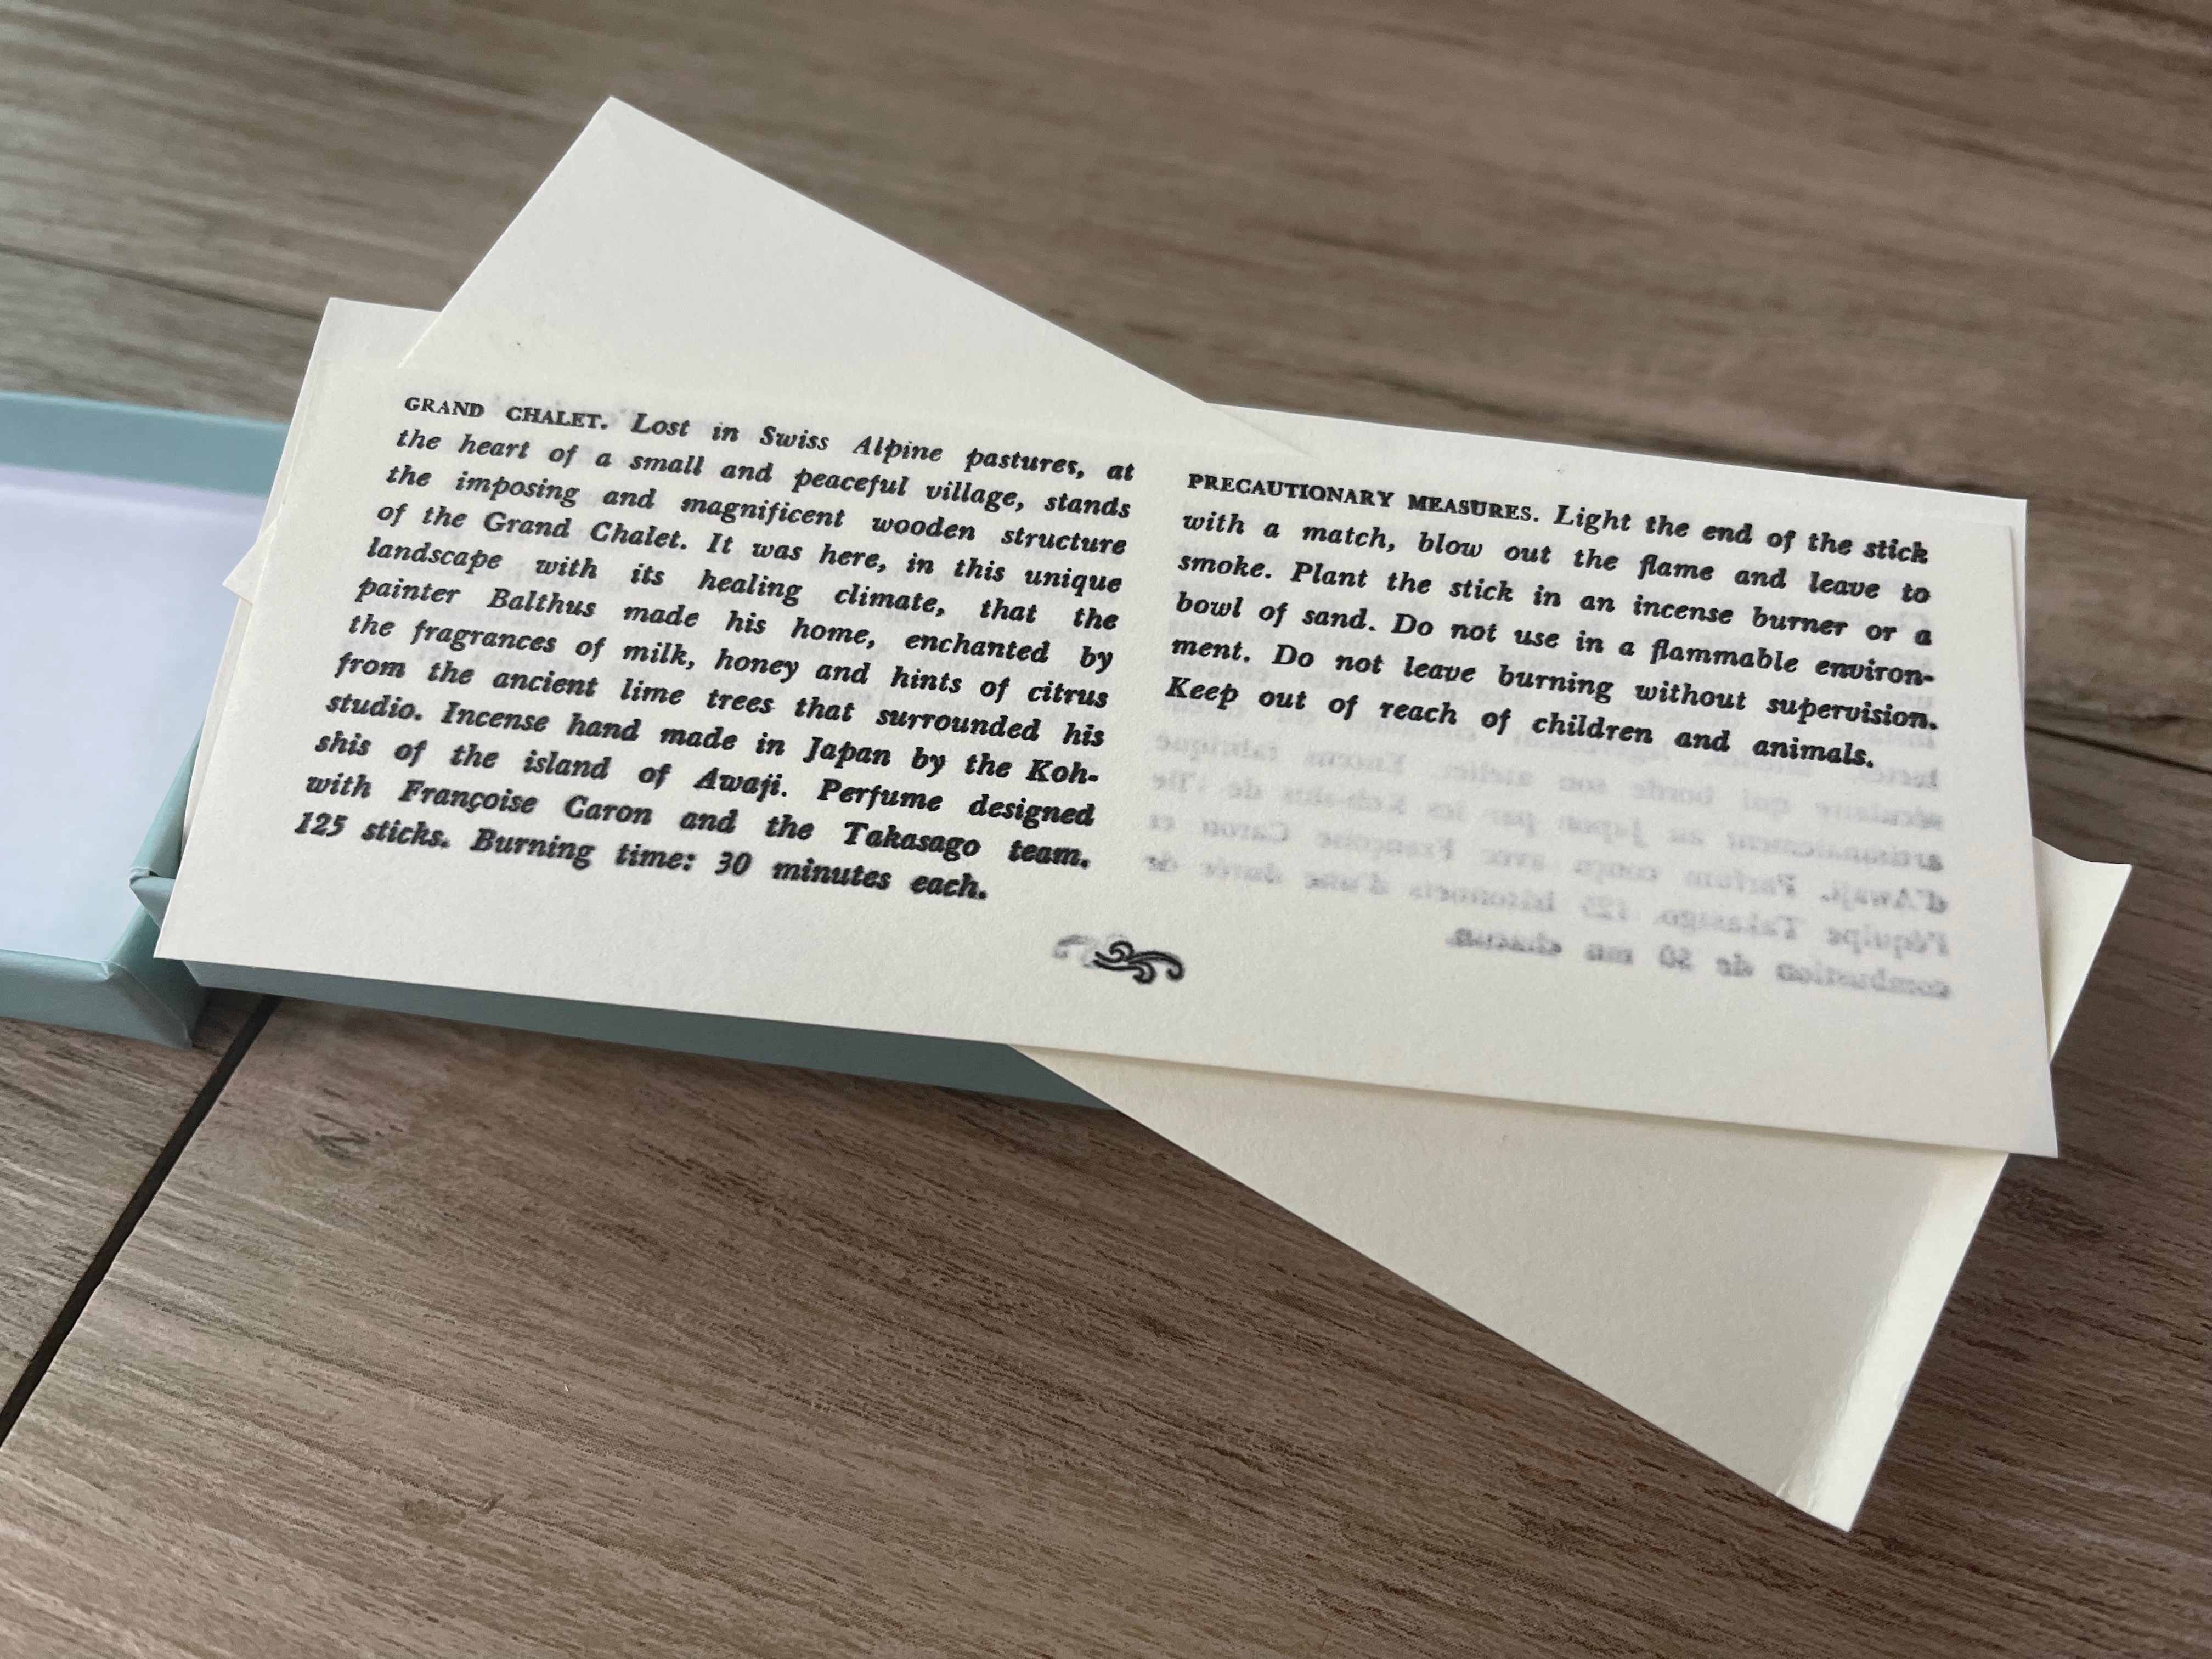 GRAND CHALET. Lost in Swiss Alpine pastures, at
the heart of a small and peaceful village, stands
the imposing and magnificent wooden structure
of the Grand Chalet. It was here, in this unique
landscape with its healing climate, that the
painter Balthus made his home, enchanted by
the fragrances of milk, honey and hints of citrus
from the ancient lime trees that surrounded his
studio. Incense hand made in Japan by the Koh-
shis of the island of Awaji. Perfume designed
with Françoise Caron and the Takasago team.
125 sticks. Burning time: 30 minutes each.
PRECAUTIONARY MEASURES. Light the end of the stick
with a match, blow out the flame and leave to
smoke. Plant the stick in an incense burner or a
bowl of sand. Do not use in a flammable environ-
ment. Do not leave burning without supervision.
Keep out of reach of children and animals.